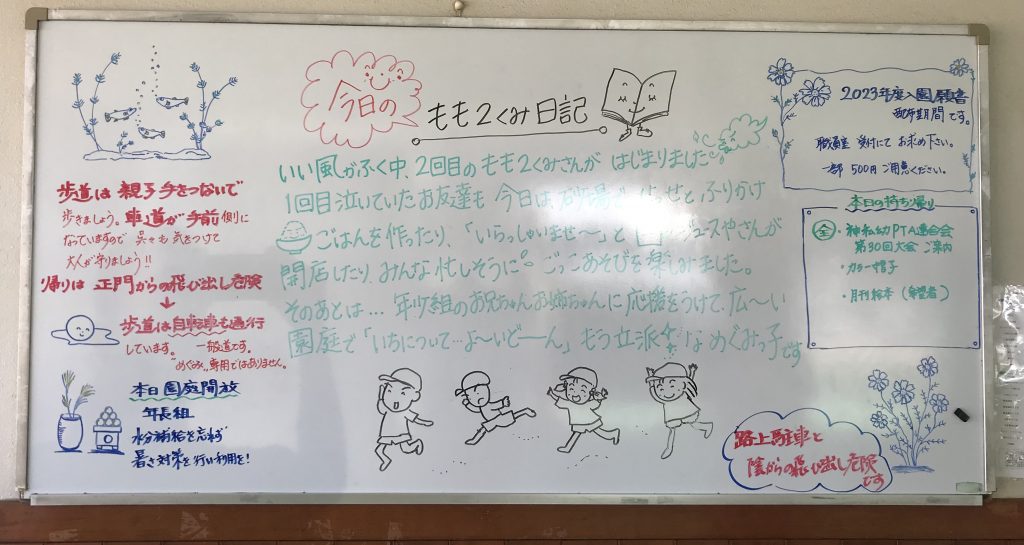 今日の
もも2くみ日記
いい風がふく中、2回目のもも2くみさんが はじまりました
1回目泣いていたお友達も 今日は 砂場で せっせと ふりかけ
ごはんを作ったり、「いらっしゃいませ〜」と ジュースやさんが
開店したり、みんな忙しそうに ごっこあそびを楽しみました。
そのあとは… 年少組のお兄ちゃんお姉ちゃんに応援をつけて、広〜い
園庭で「いちについて…よ〜いどーーん」もう立派 な めぐみっ子です
歩道は 親子 手をつないで
歩きましょう。車道が手前側に
なっていますので 呉々も 気をつけて
大人が守りましょう!!
帰りは 正門からの飛び出し危険
歩道は自転車も通行
しています。 一般道です。
"めぐみ"専用ではありません。
本日 園庭開放
年長組
水分補給を忘れず
暑さ対策を行い利用を!
2023年度入園願書
配布期間です。
職員室 受付にて お求め下さい。
一部 500円 ご用意ください。
本日の持ち帰り
全・神私幼PTA連合会
第30回大会 ご案内
・カラー帽子
・月刊絵本(希望者)
路上駐車と
陰からの飛び出し危険
です